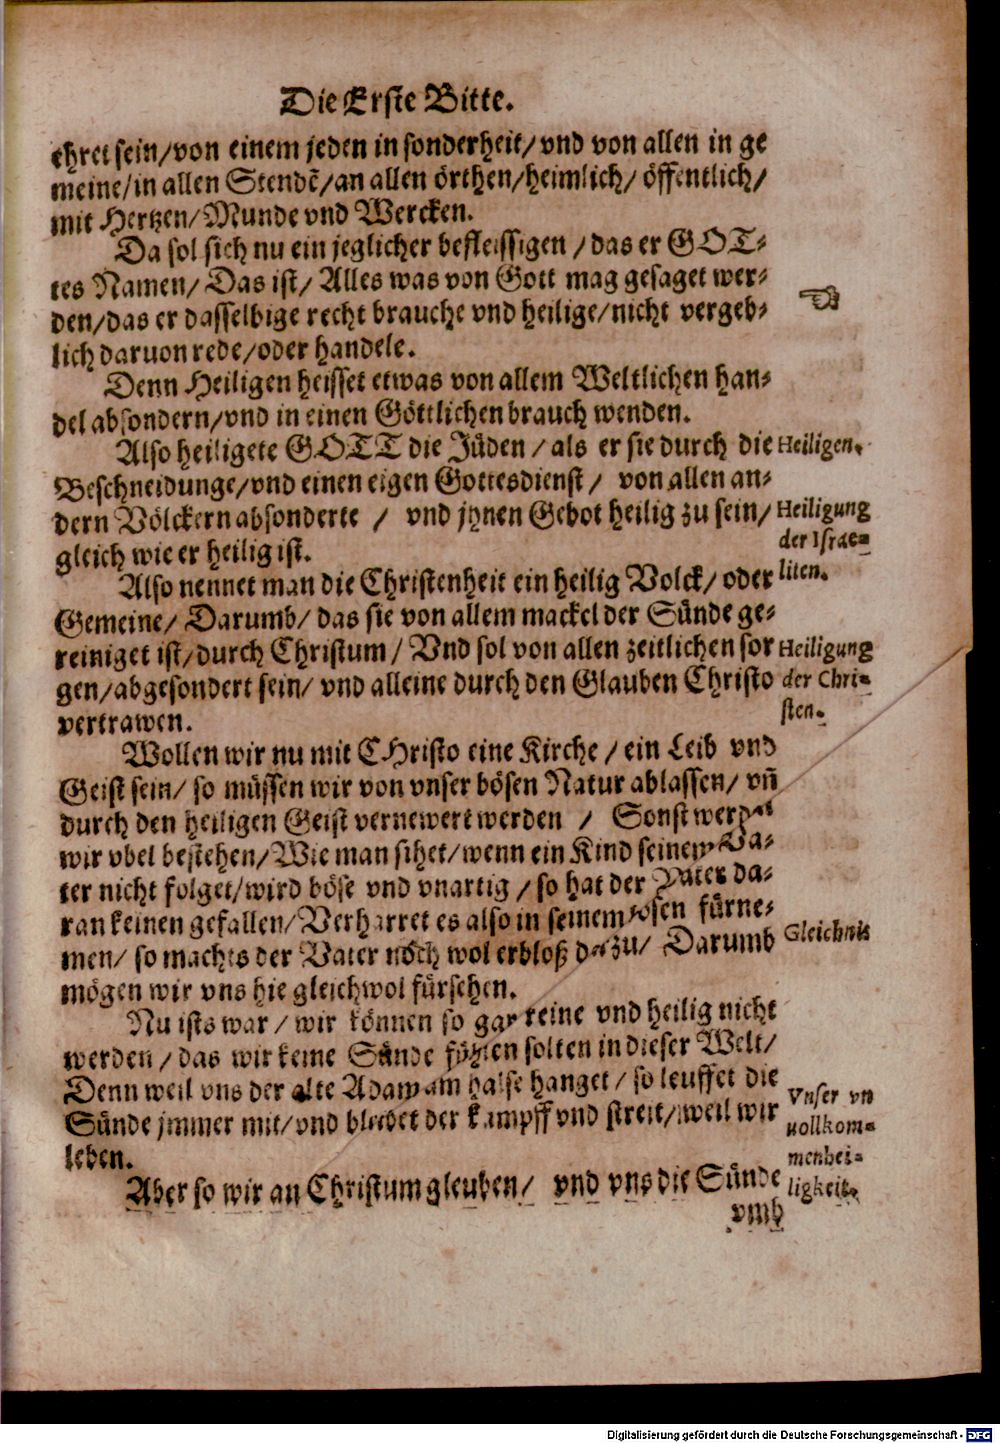 Die Erste Bitte.
ehret sein/von einem jeden in sonderheit/vnd von allen in ge
meine/in allen Stendē/an allen örthen/heimlich/ öffentlich/
mit Hertzen/Munde vnd Wercken.
Da sol sich nu ein jeglicher befleissigen /das er GOT-
tes Namen/ Das ist/ Alles was von Gott mag gesaget wer-
den/das er dasselbige recht brauche vnd heilige/nicht vergeb-
lich daruon rede/oder handele.
Denn Heiligen heisset etwas von allem Weltlichen han-
del absondern/vnd in einen Göttlichen brauch wenden.
Also heiligete GOTT die Jüden /als er sie durch die
Heiligen.
Beschneidunge/vnd einen eigen Gottesdienst/ von allen an-
dern Völckern absonderte / vnd jhnen Gebot heilig zu sein/
gleich wie er heilig ist.
Heiligung
der Israe-
liten.
Also nennet man die Christenheit ein heilig Volck/ oder
Gemeine/ Darumb/ das sie von allem mackel der Sünde ge-
reiniget ist/durch Christum/ Vnd sol von allen zeitlichen sor
gen/abgesondert sein/ vnd alleine durch den Glauben Christo
vertrawen.
Heiligung
der Chri-
sten.
Wollen wir nu mit CHristo eine Kirche /ein Leib vnd
Geist sein/ so müssen wir von vnser bösen Natur ablassen/ vñ
durch den heiligen Geist vernewert werden / Sonst
wir vbel bestehen/Wie man sihet/wenn ein Kind seinem Va-
ter nicht folget/wird böse vnd vnartig /so hat der Vater da-
ran keinen gefallen/Verharret es also in seinem bösen fürne-
men/ so machts der Vater noch wol erbloß dazu/ Darumb
mögen wir vns hie gleichwol fürsehen.
Gleichnis
Nu ists war/wir können so gar reine vnd heilig nicht
werden/das wir keine Sünde fühlen solten in dieser Welt/
Denn weil vns der alte Adam am halse hanget/so leuffet die
Sünde jmmer mit/vnd bleibet der kampff vnd streit/weil wir
leben.
Vnser vn
uollkom-
menhei-
ligkeit.
Aber so wir an Christum gleuben/ vnd vns die Sünde
vmb
Digitalisierung gefördert durch die Deutsche Forschungsgemeinschaft - DFG